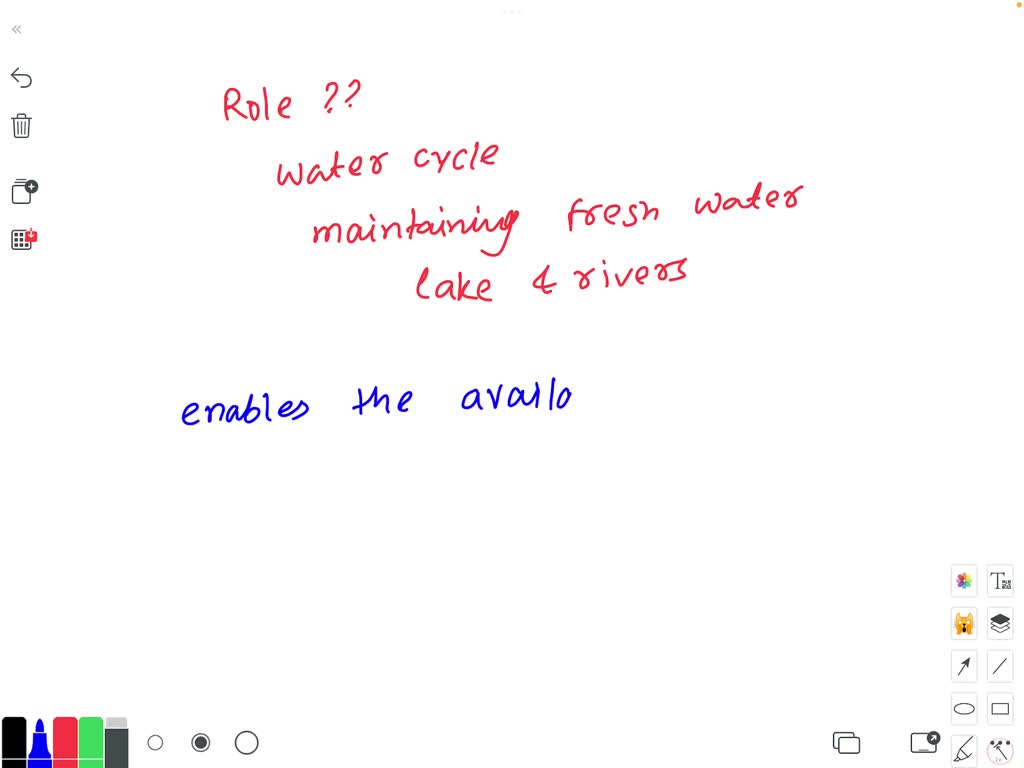 Role ??
water cycle
maintaining fresh water
lake & rivers
enables the availa